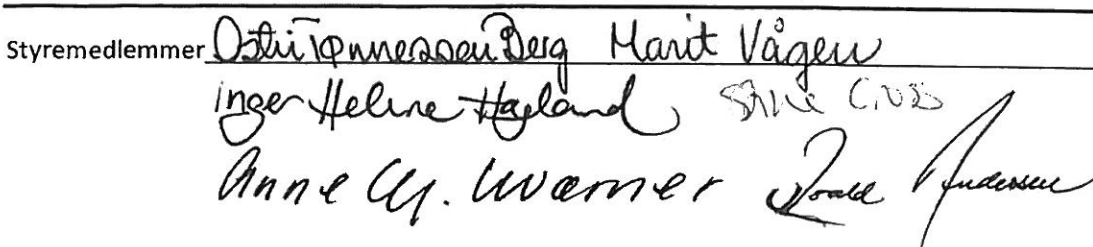 Styremedlemmer Ostri Tønnessen Berg Marit Vågen
Inger Helene Hagland Stine
Anne M. Roald Andersen